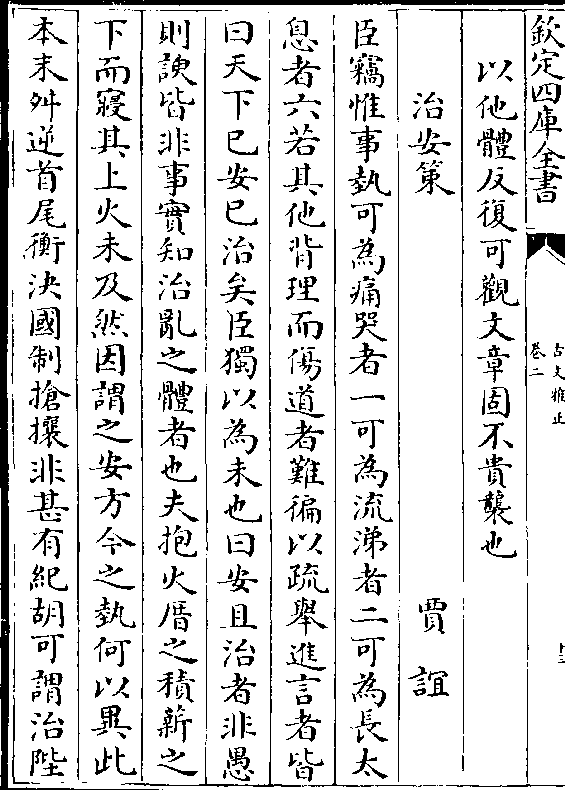 欽定四庫全書
古文雅正
卷二
十三
以他體反復可觀文章固不貴襲也
治安策 賈誼
臣竊惟事埶可為痛哭者一可為流涕者二可為長太
息者六若其他背理而傷道者難徧以疏舉進言者皆
曰天下已安已治矣臣獨以為未也曰安且治者非愚
則諛皆非事實知治亂之體者也夫抱火厝之積薪之
下而寢其上火未及然因謂之安方今之埶何以異此
本末舛逆首尾衡決國制搶攘非甚有紀胡可謂治陛